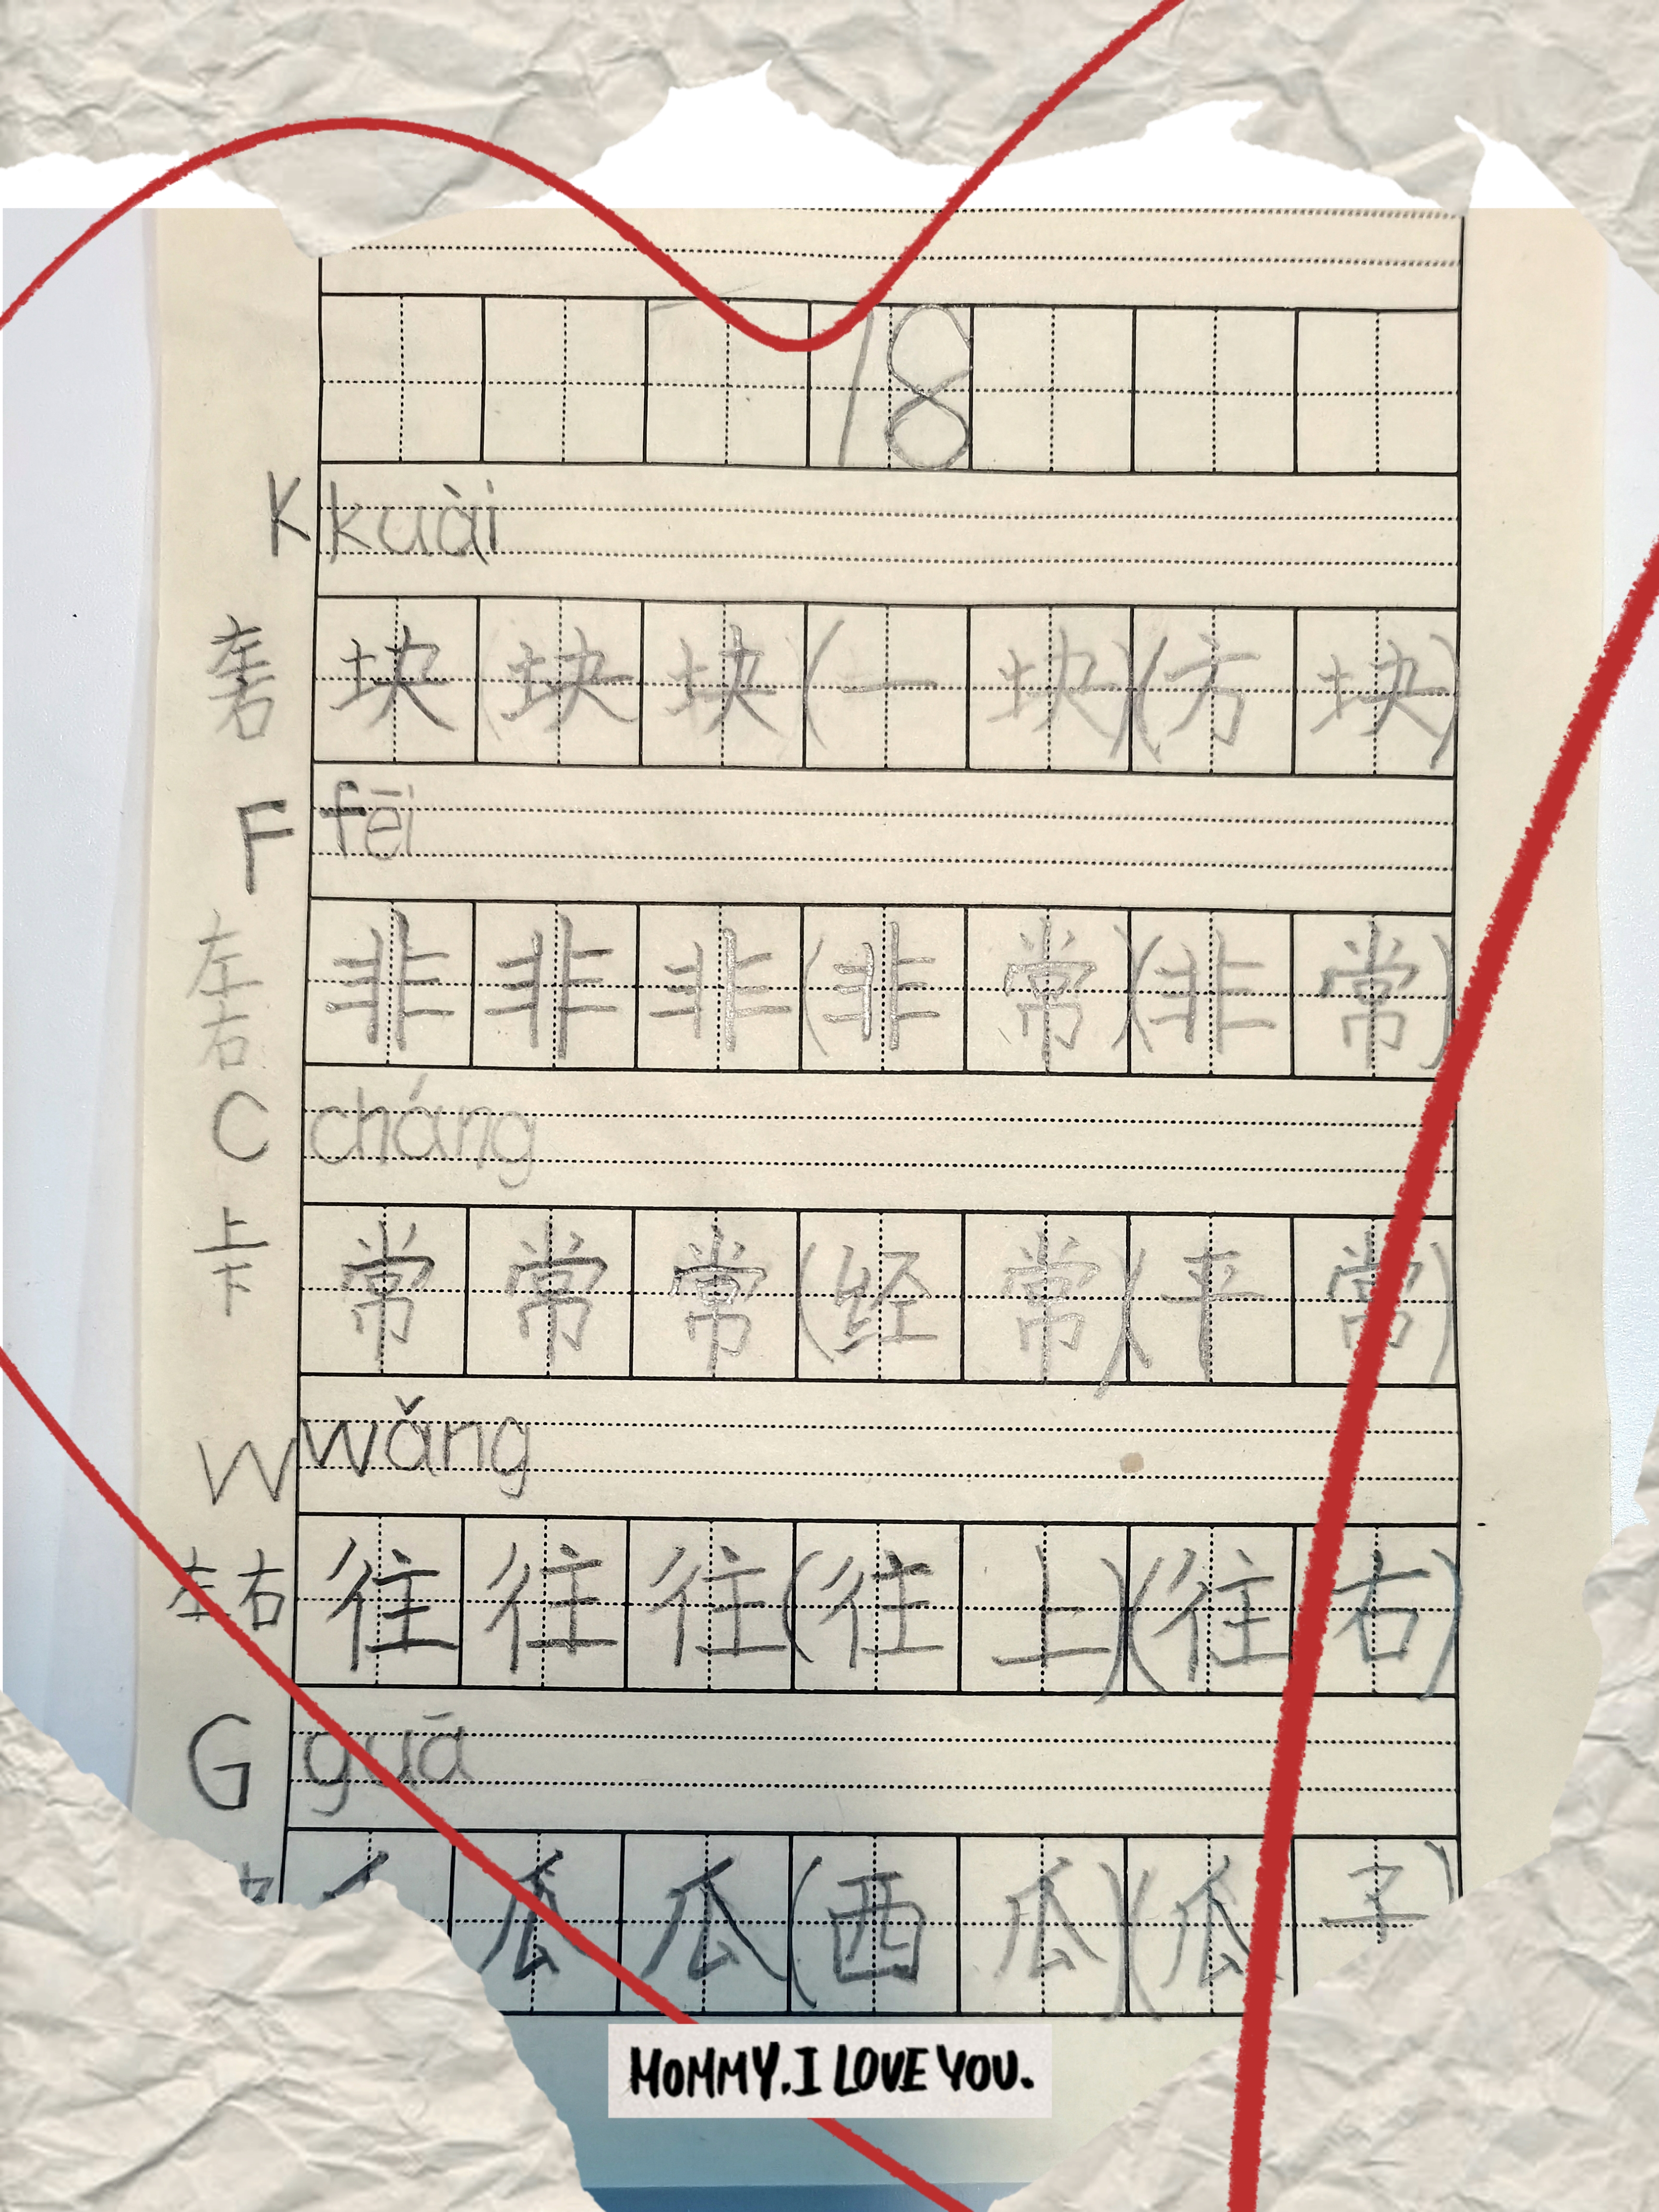 18
K kuài
左右 块块块(一块)(方块)
F fēi
左右 非非非(非常)(非常)
C cháng
上下 常常常(经常)(平常)
W wǎng
左右 往往往(往上)(往右)
G guā
瓜瓜(西瓜)(瓜子)
MOMMY.I LOVE YOU.